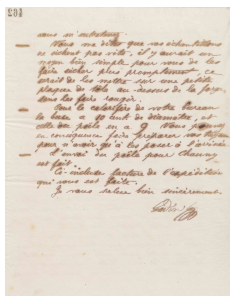 vous m'entretenez.
Vous me dites que vos échantillons
ne sèchent pas vite, il y aurait un
moyen bien simple pour vous de les
faire sécher plus promptement, ce
serait de les mettre sur une petite
plaque de tôle au-dessous de la forge
sans les faire rougir.
Que le calorifère de votre bureau
la base a 90 cent de diamètre, et
celle du poêle en a
conséquence faire préparer vos
pour n'avoir qu'à les poser à l'arrivée
L'envoi du poêle pour Chauny
est fait.
Ci-incluse facture de l'expédition
qui vous est faite.
Je vous salue bien sincèrement
Godin